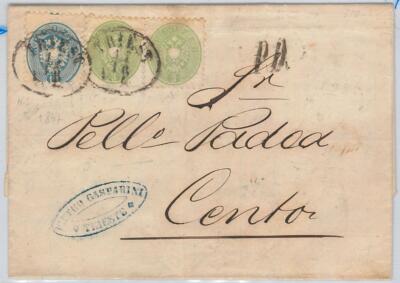 TRIEST
TRIEST
P.D.
Sr
Pello Padoa
Cento
PIETRO GASPARINI
TRIESTE